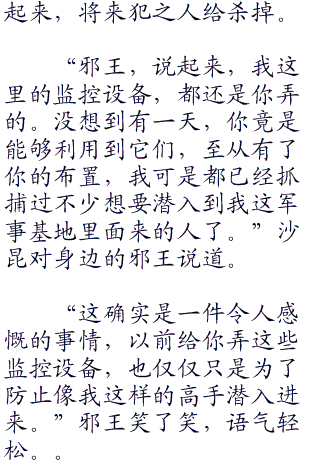 起来，将来犯之人给杀掉。
“邪王，说起来，我这
里的监控设备，都还是你弄
的。没想到有一天，你竟是
能够利用到它们，至从有了
你的布置，我可是都已经抓
捕过不少想要潜入到我这军
事基地里面来的人了。”沙
昆对身边的邪王说道。
“这确实是一件令人感
慨的事情，以前给你弄这些
监控设备，也仅仅只是为了
防止像我这样的高手潜入进
来。”邪王笑了笑，语气轻
松。。